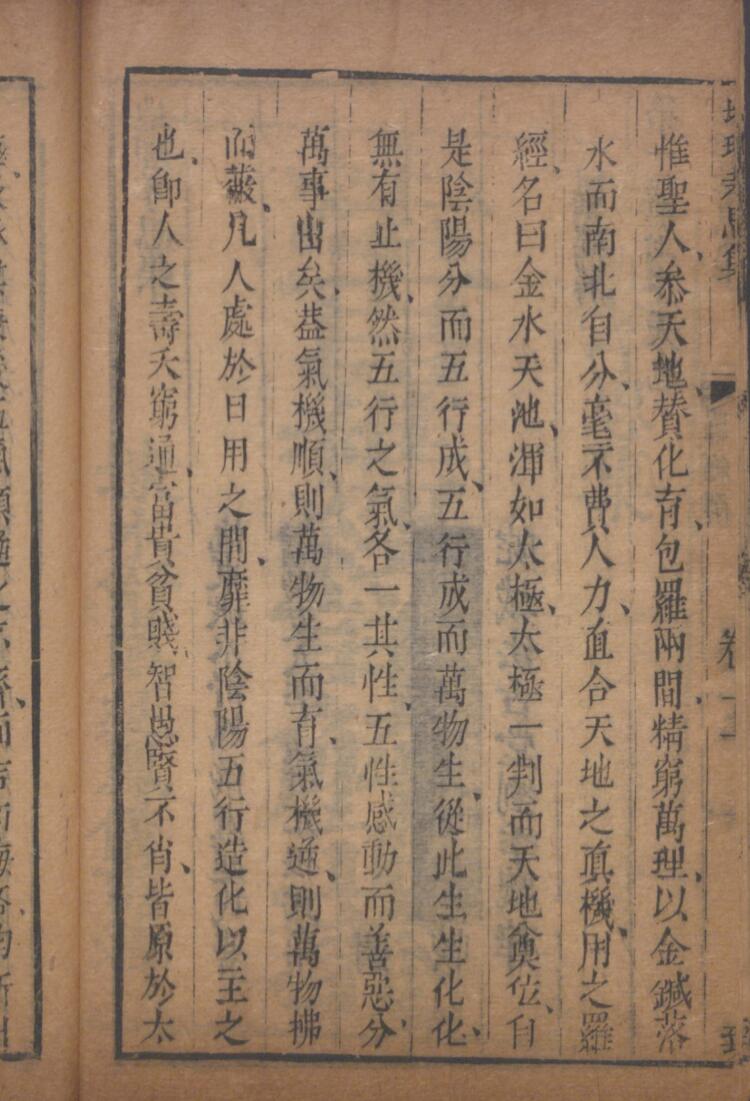 卷一
惟聖人、叅天地、贊化育、包羅兩間、精窮萬理、以金鍼落
水而南北自分、毫不費人力、直合天地之眞機、用之羅
經、名曰金水天池、渾如太極、太極一判而天地奠位、自
是陰陽分而五行成、五行成而萬物生、從此生生化化、
無有止機、然五行之氣、各一其性、五性感動而善惡分、
萬事出矣、葢氣機順、則萬物生而育、氣機、則萬物拂
而、凡人處於日用之間、靡非陰陽五行造化以主之
也、卽人之壽夭窮通、富貴貧賤、智愚賢不肖、皆原於太